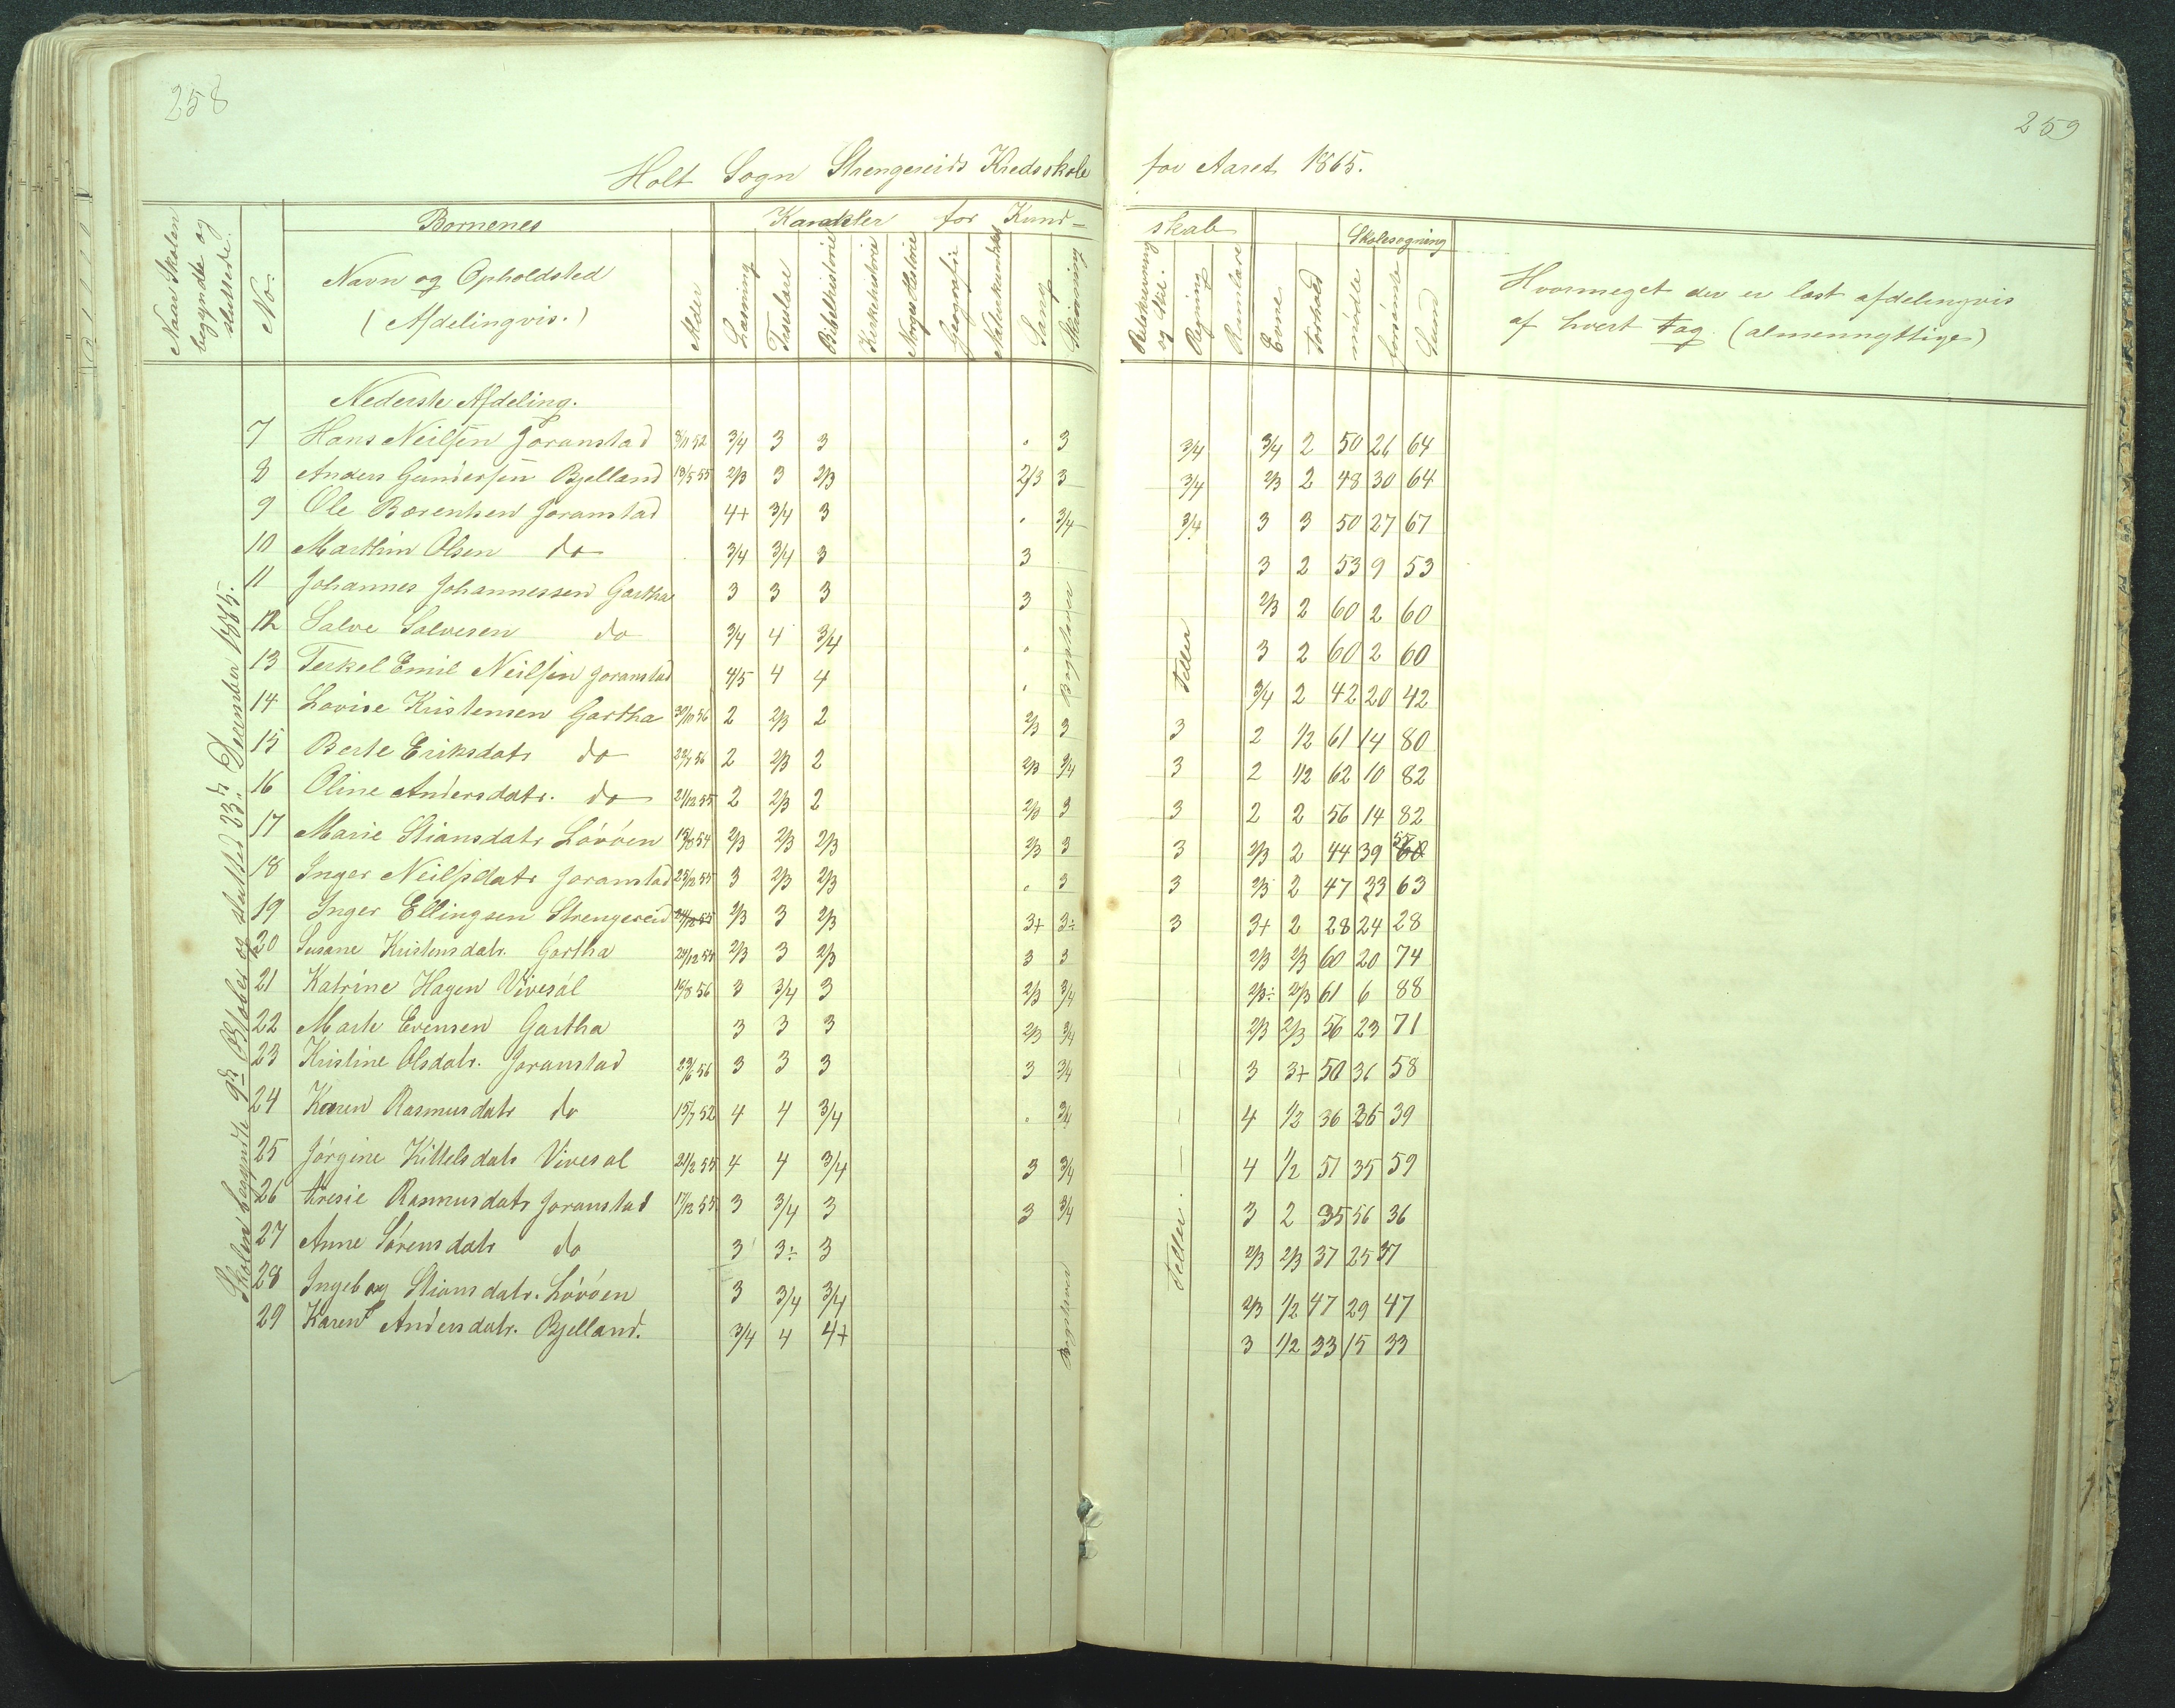 258
259
Holt Sogn Strengereids Kredsskole for Aaret 1865.
Naar Skolen begyndte og sluttede.
No.
Børnenes
Navn og Opholdsted
(Afdelingvis.)
Alder
Karakter for Kundskab
Læsning
Bibelhistorie
Kirkehistorie
Norgeshistorie
Geografie
Sang
Skrivning
Retskrivning og Stil.
Regning
Evne
Forhold
Skolesøgning
mødte
forsømte
Sum
Hvormeget der er læst afdelingvis
af hvert Fag. (almennyttige)
Skolen begyndte 9de Oktober og sluttet 23de December 1865.
Nederste Afdeling.
7 Hans Neilsen Goranstad 3/4 3 3 . 3 3/4 3/4 2 50 26 64
8 Anders Gundersen Bjelland 19/5 55 2/3 3 2/3 2/3 3 3/4 2/3 2 48 30 64
9 Ole Berentsen Joranstad 4+ 3/4 3 . 3/4 3/4 3 3 50 27 67
10 Marthin Olsen do 3/4 3/4 3 3 3 2 53 9 53
11 Johannes Johannessen Gartha 3 3 3 3 2/3 2 60 2 60
12 Salve Salvesen do 3/4 4 3/4 . 3 2 60 2 60
13 Terkel Emil Neilsen Joranstad 4/5 4 4 . Bogstaver Teller 3/4 2 42 20 42
14 Lovise Kristensen Gartha 2 2/3 2 2/3 3 3 2 1/2 61 14 80
15 Berte Eriksdatr do 2 2/3 2 2/3 3/4 3 2 1/2 62 10 82
16 Oline Andersdatr. do 21/12 55 2 2/3 2 2/3 3 3 2 2 56 14 82
17 Marie Stiansdatr Løvøen 2/3 2/3 2/3 2/3 3 3 2/3 2 44 39
18 Inger Neilsdatr Joranstad 3 2/3 2/3 . 3 3 2/3 2 47 33 63
19 Inger Ellingsen Strengereid 2/3 3 2/3 3+ 3÷ 3 3+ 2 28 24 28
20 Susane Kristensdatr. Gartha 2/3 3 2/3 3 3 2/3 2/3 60 20 74
21 Katrine Hagen Vivesøl 19/8 56 3 3/4 3 2/3 3/4 2/3÷ 2/3 61 6 88
22 Marte Evensen Gartha 3 3 3 2/3 3/4 2/3 2/3 56 23 71
23 Kristine Olsdatr. Joranstad 3 3 3 3 3/4 3 3+ 50 36 58
24 Karen Rasmusdatr do 15/7 52 4 4 3/4 . 3/4 4 1/2 36 36 39
25 Jørgine Kittelsdatr Vivesøl 4 4 3/4 3 3/4 4 1/2 51 35 59
26 Rasmusdatr Joranstad 17/12 55 3 3/4 3 3 3/4 3 2 35 56 36
27 Anne Sørensdatr do 3 3÷ 3 2/3 2/3 37 25 37
28 Ingeborg Stiansdatr. Løvøen 3 3/4 3/4 Teller. 2/3 1/2 47 29 47
29 Karen Andersdatr. Bjelland. 3/4 4 4+ Bogstaver 3 1/2 33 15 33